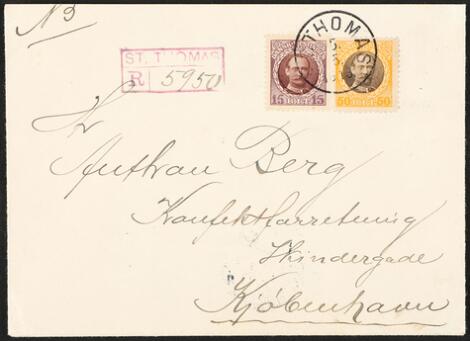 N 3
ST. THOMAS
R 5950
ST. THOMAS
15 BIT 15
50 BIT 50
Hr
Anthon Berg
Konfektforretning
Skindergade
Kjøbenhavn